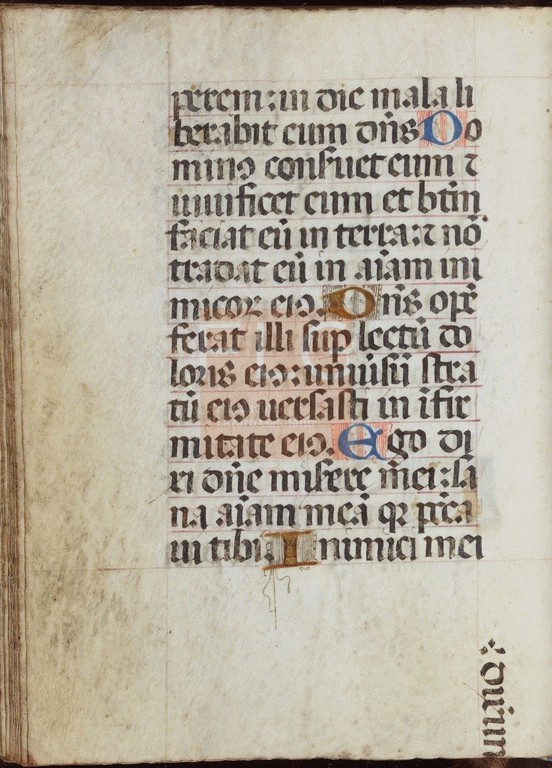 perem: in die mala li
berabit eum dn̄s Do
minꝰ conseruet eum ⁊
uiuificet eum et btm̄
faciat eū in terra: ⁊ nō
tradat eū in aīam ini
micoꝝ eiꝰ. Dn̄s opē
ferat illi sup lectū do
loris eiꝰ: uniuersū stra
tū eiꝰ uersasti in īfir
mitate eiꝰ. Ego di
xi dn̄e miserere mei: sa
na aīam meā qꝛ pecca
ui tibi. Inimici mei
dixerunt